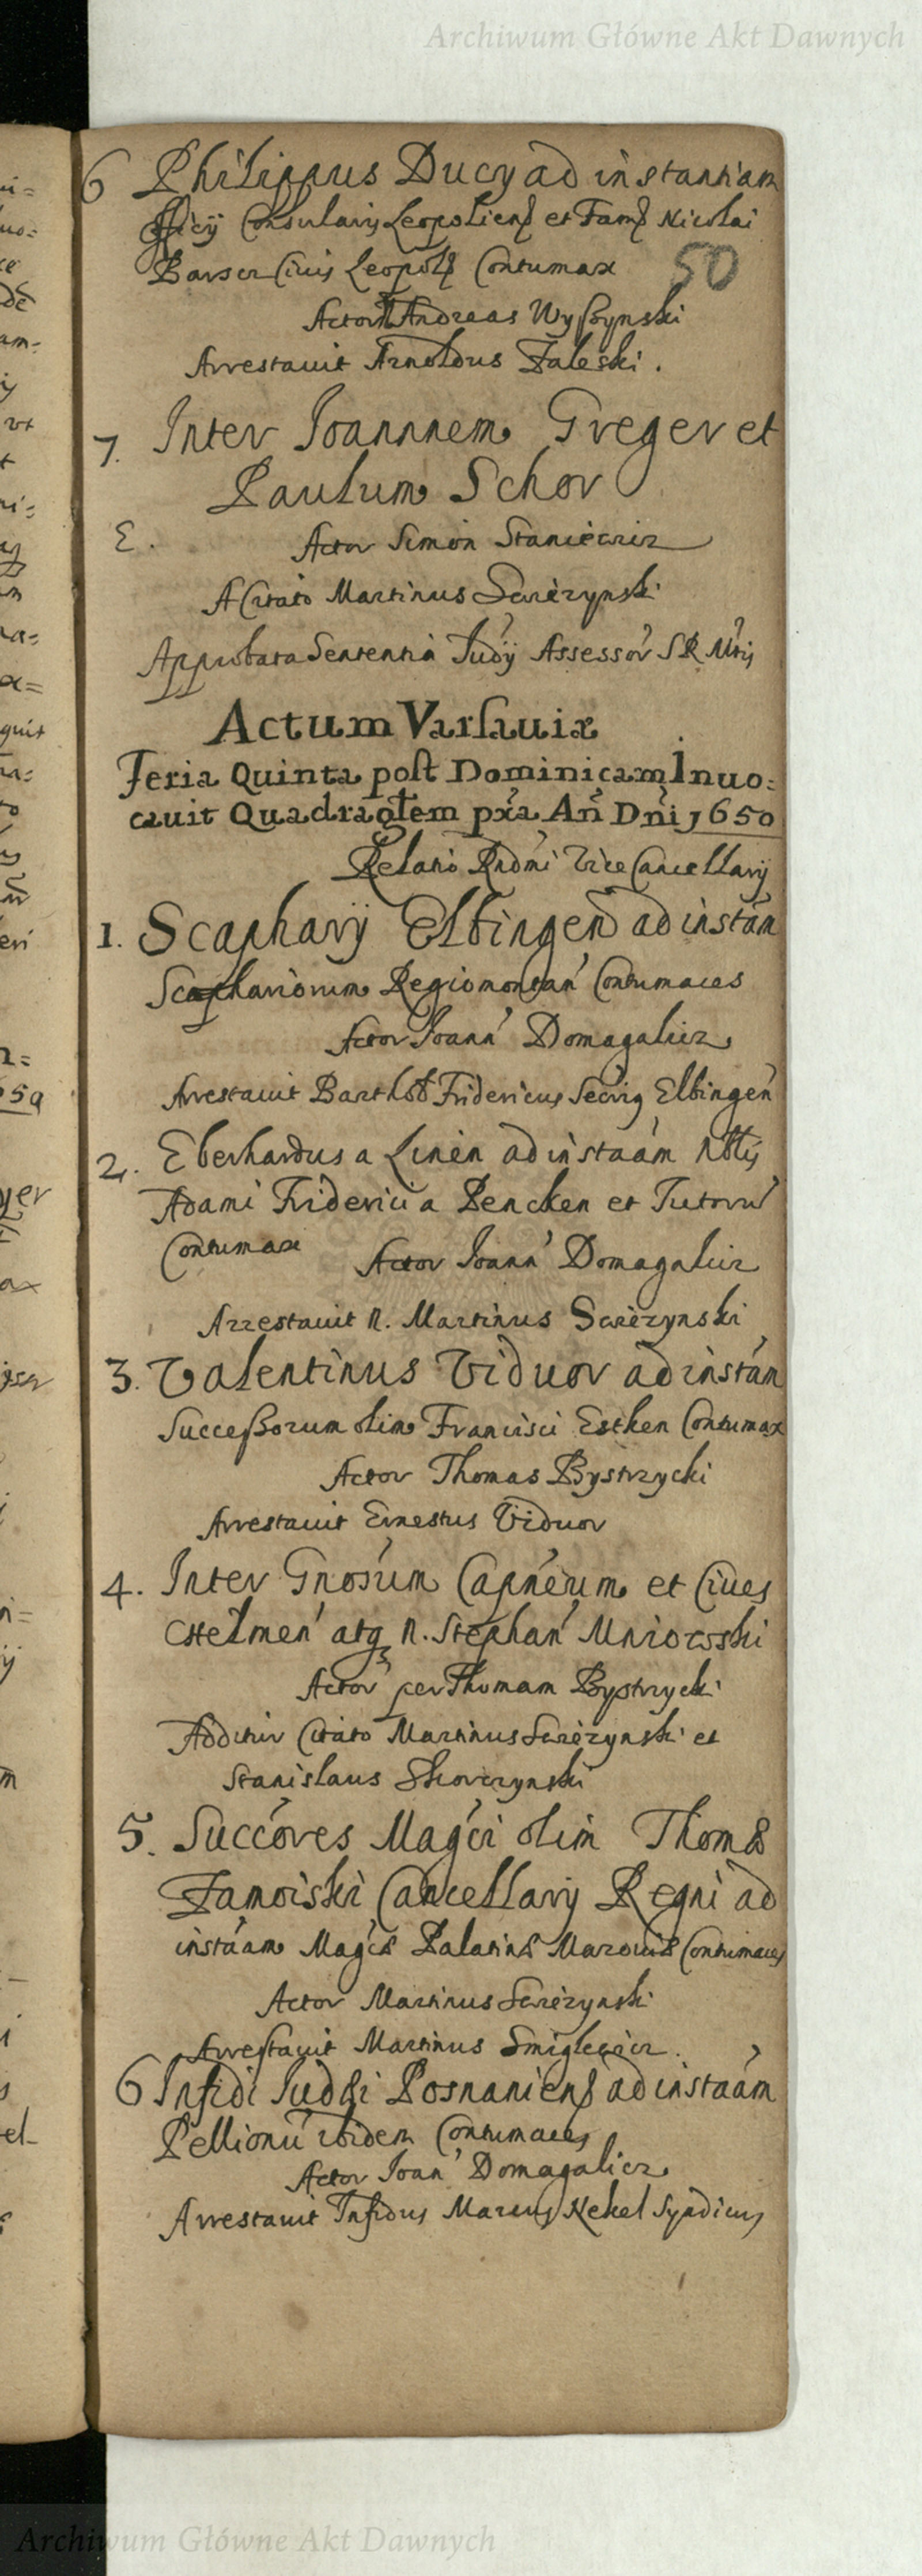 Archiwum Główne Akt Dawnych
6 Philippus Ducy ad instantiam
Officij Consularis Leopoliens et Fam Nicolai
Barser Civis Leopols Contumax
50
Actor Andreas Wyszynski
Arrestavit Arnoldus Zaleski.
7. Inter Joannnem Greger et
Paulum Schor
E. Actor Simon Staniewicz
A Citato Martinus Swiezynski
Approbata Sententia Judij Assessor S R Mtis
Actum Varsauiæ
Feria Quinta post Dominicam Inuo:
cauit Quadraglem pxa An Dni 1650
Relatio Rndmi Vice Cancellarij
1. Scapharij Elbingen ad instan
Scaphariorum Regiomontan Contumaces
Actor Joann Domagalicz
Arrestauit Barthol Fridericus Elbingen
2. Eberhardus a Linen ad instaam Nblis
Adami Friderici a Pencken et Tutoru
Contumax Actor Joann Domagalicz
Arrestauit N. Martinus Swiezynski
3. Valentinus Viduor ad instan
Successorum olim Francisci Esthen Contumax
Actor Thomas Bystrzycki
Arrestauit Ernestus Viduor
4. Inter Gnosum Capneum et Ciues
Chelmen atq N. Stephan Mniowski
Actor per Thomam Bystrzycki
Additur Citato Martinus Swiezynski et
Stanislaus Skorczynski
5. Succores Magci olim Thomæ
Zamoiski Cancellarij Regni ad
instaam Magcæ Palatinæ Mazouiæ Contumaces
Actor Martinus Swiezynski
Arrestauit Martinus Smiglewicz.
6 Infidi Judæi Posnaniens ad instaam
Pellionu ibidem Contumaces
Actor Joan Domagalicz
Arrestauit Infidus Marcus Nekel Syndicus
Archiwum Główne Akt Dawnych